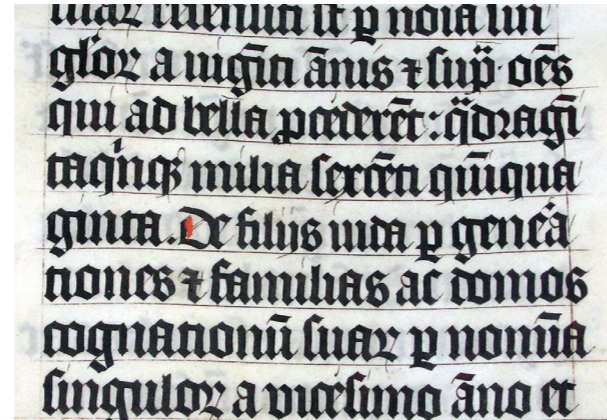 suaꝝ recensiti sūt ꝑ noīa sin
gloꝝ a uigīti ānis ⁊ sup̄ oēs
qui ad bella ꝓcederēt: q̈dragī
taq̇nqꝫ milia sexcēti qūiqua
ginta. De filijs iuda ꝑ gen̄ea
tiones ⁊ familias ac domos
cognationū suaꝝ ꝑ nomīa
singuloꝝ a vicesimo āno et